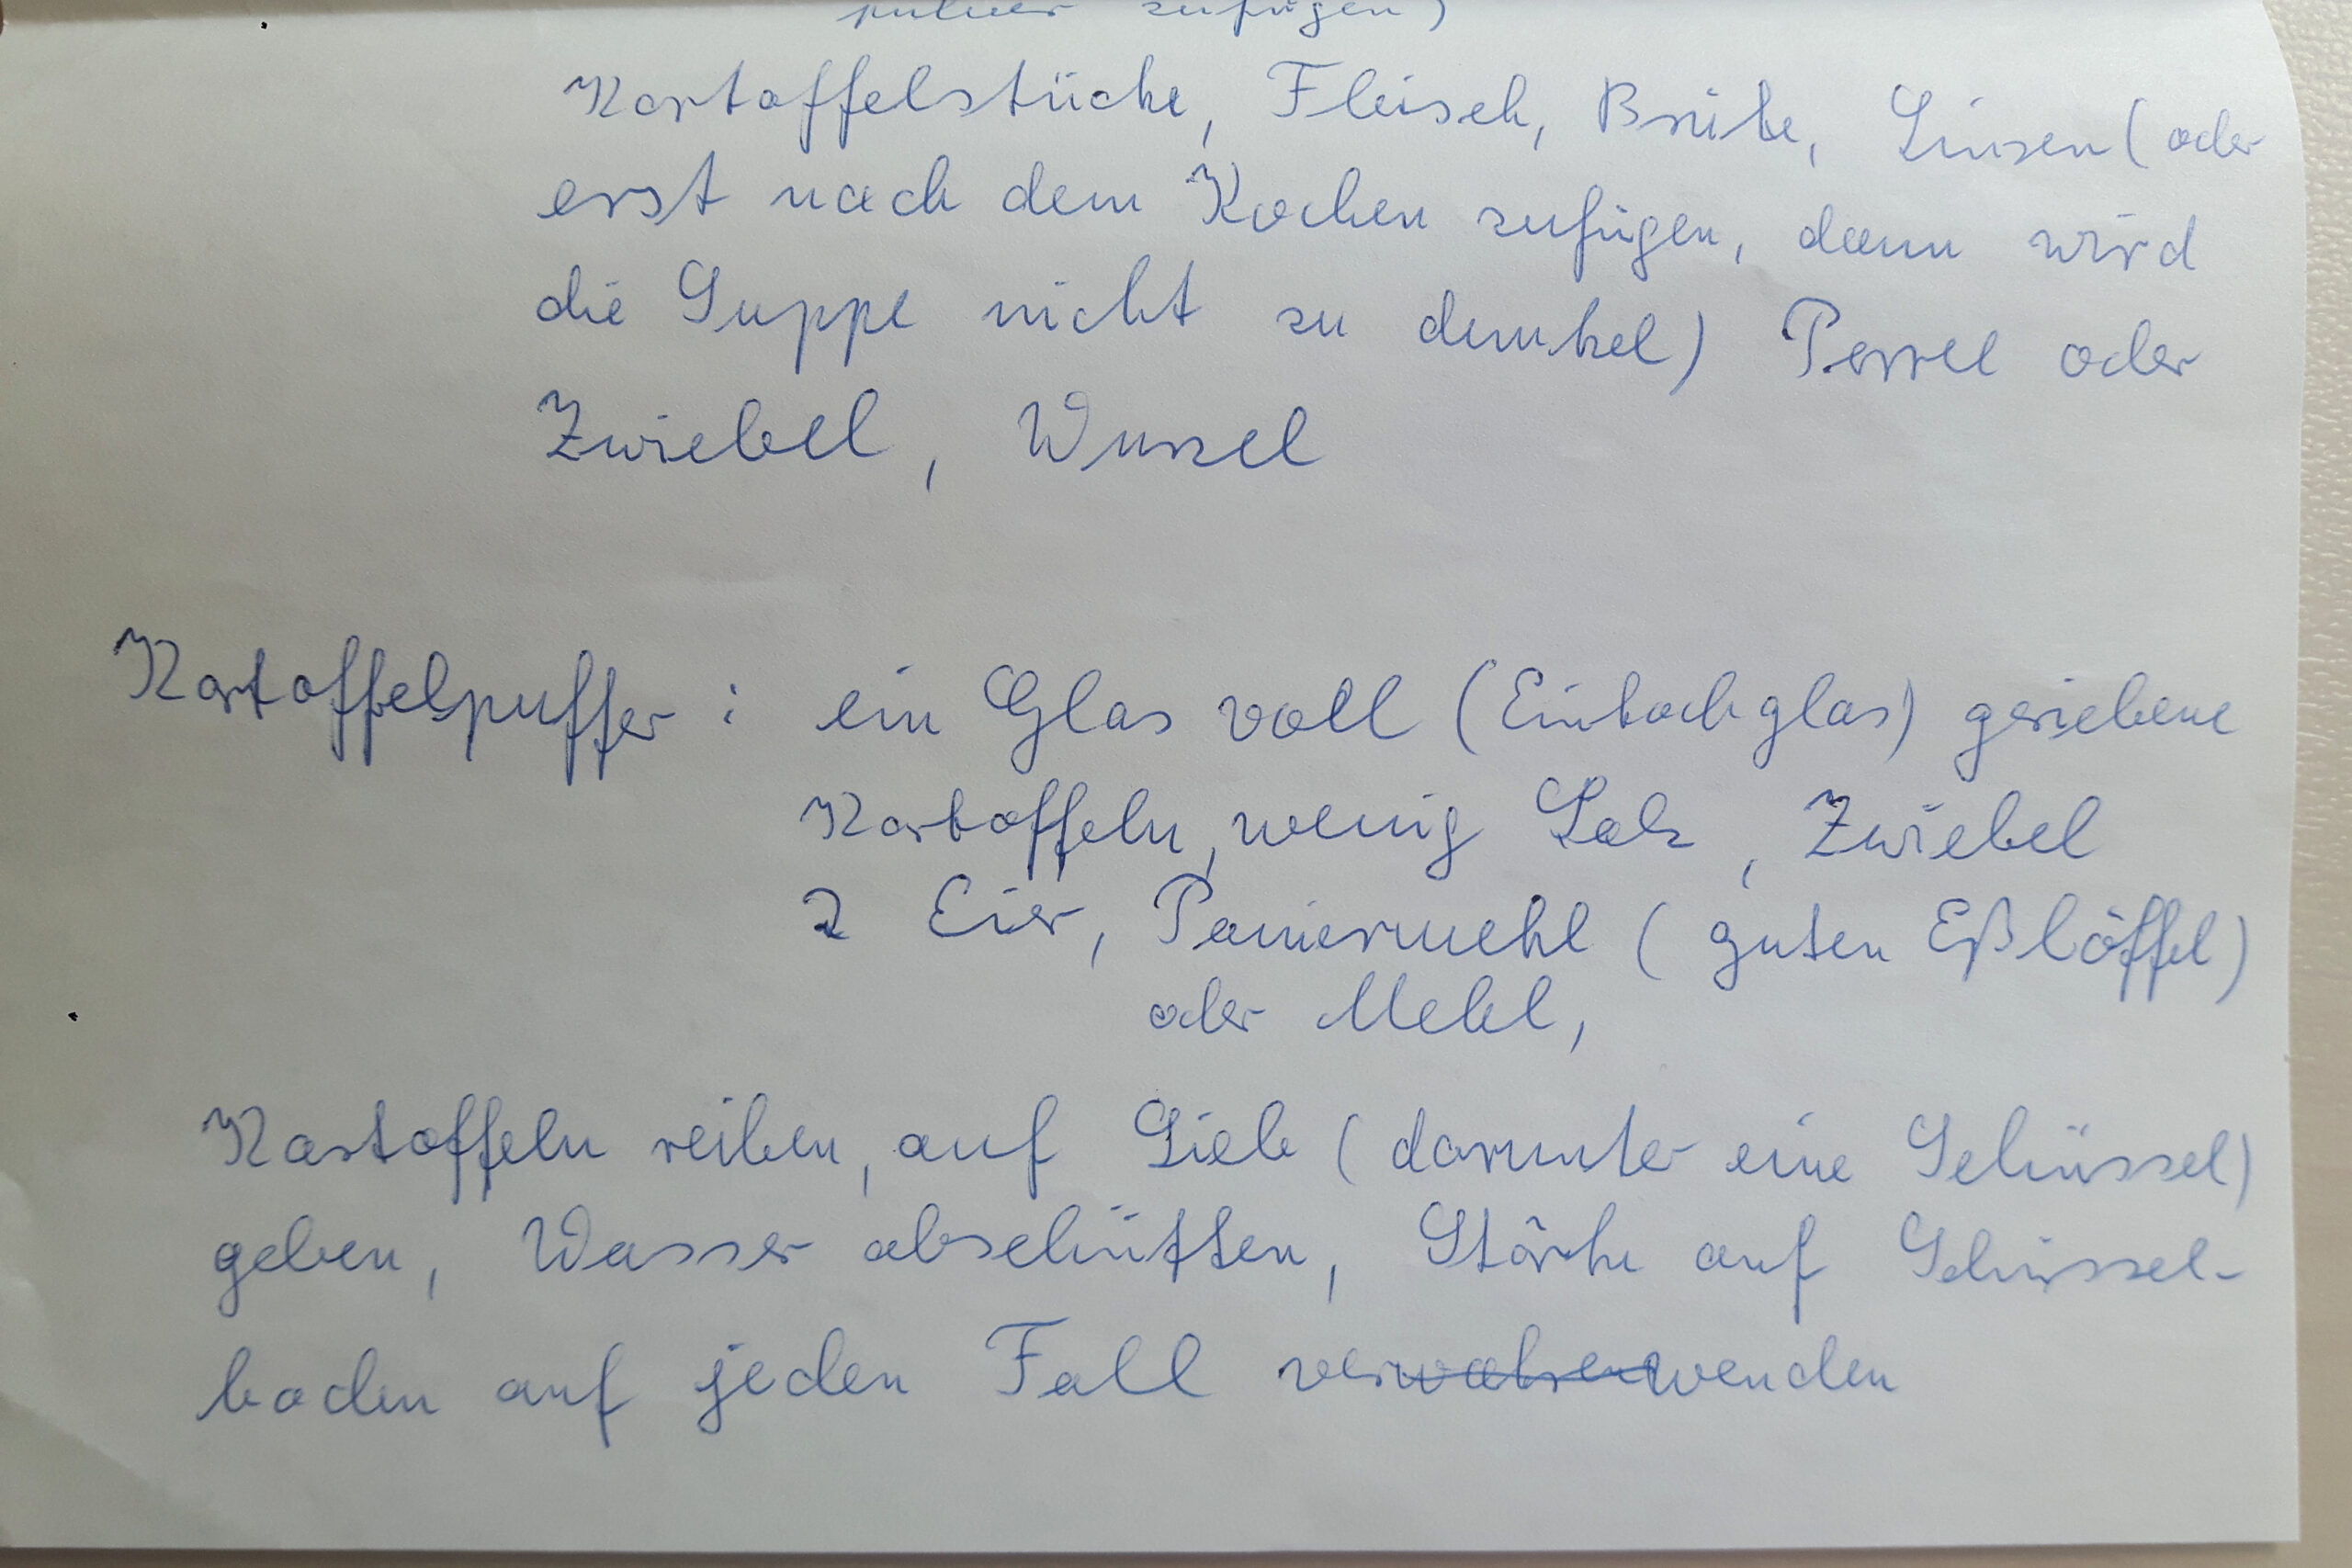 pulver zufügen)
Kartoffelstücke, Fleisch, Brühe, Linsen (oder
erst nach dem Kochen zufügen, dann wird
die Suppe nicht zu dunkel) Porree oder
Zwiebel, Wurzel
Kartoffelpuffer: ein Glas voll (Einkochglas) geriebene
Kartoffeln, wenig Salz, Zwiebel
2 Eier, Paniermehl (guten Eßlöffel)
oder Mehl,
Kartoffeln reiben, auf Sieb (darunter eine Schüssel)
geben, Wasser abschütten, Stärke auf Schüssel-
boden auf jeden Fall verwahrenwenden